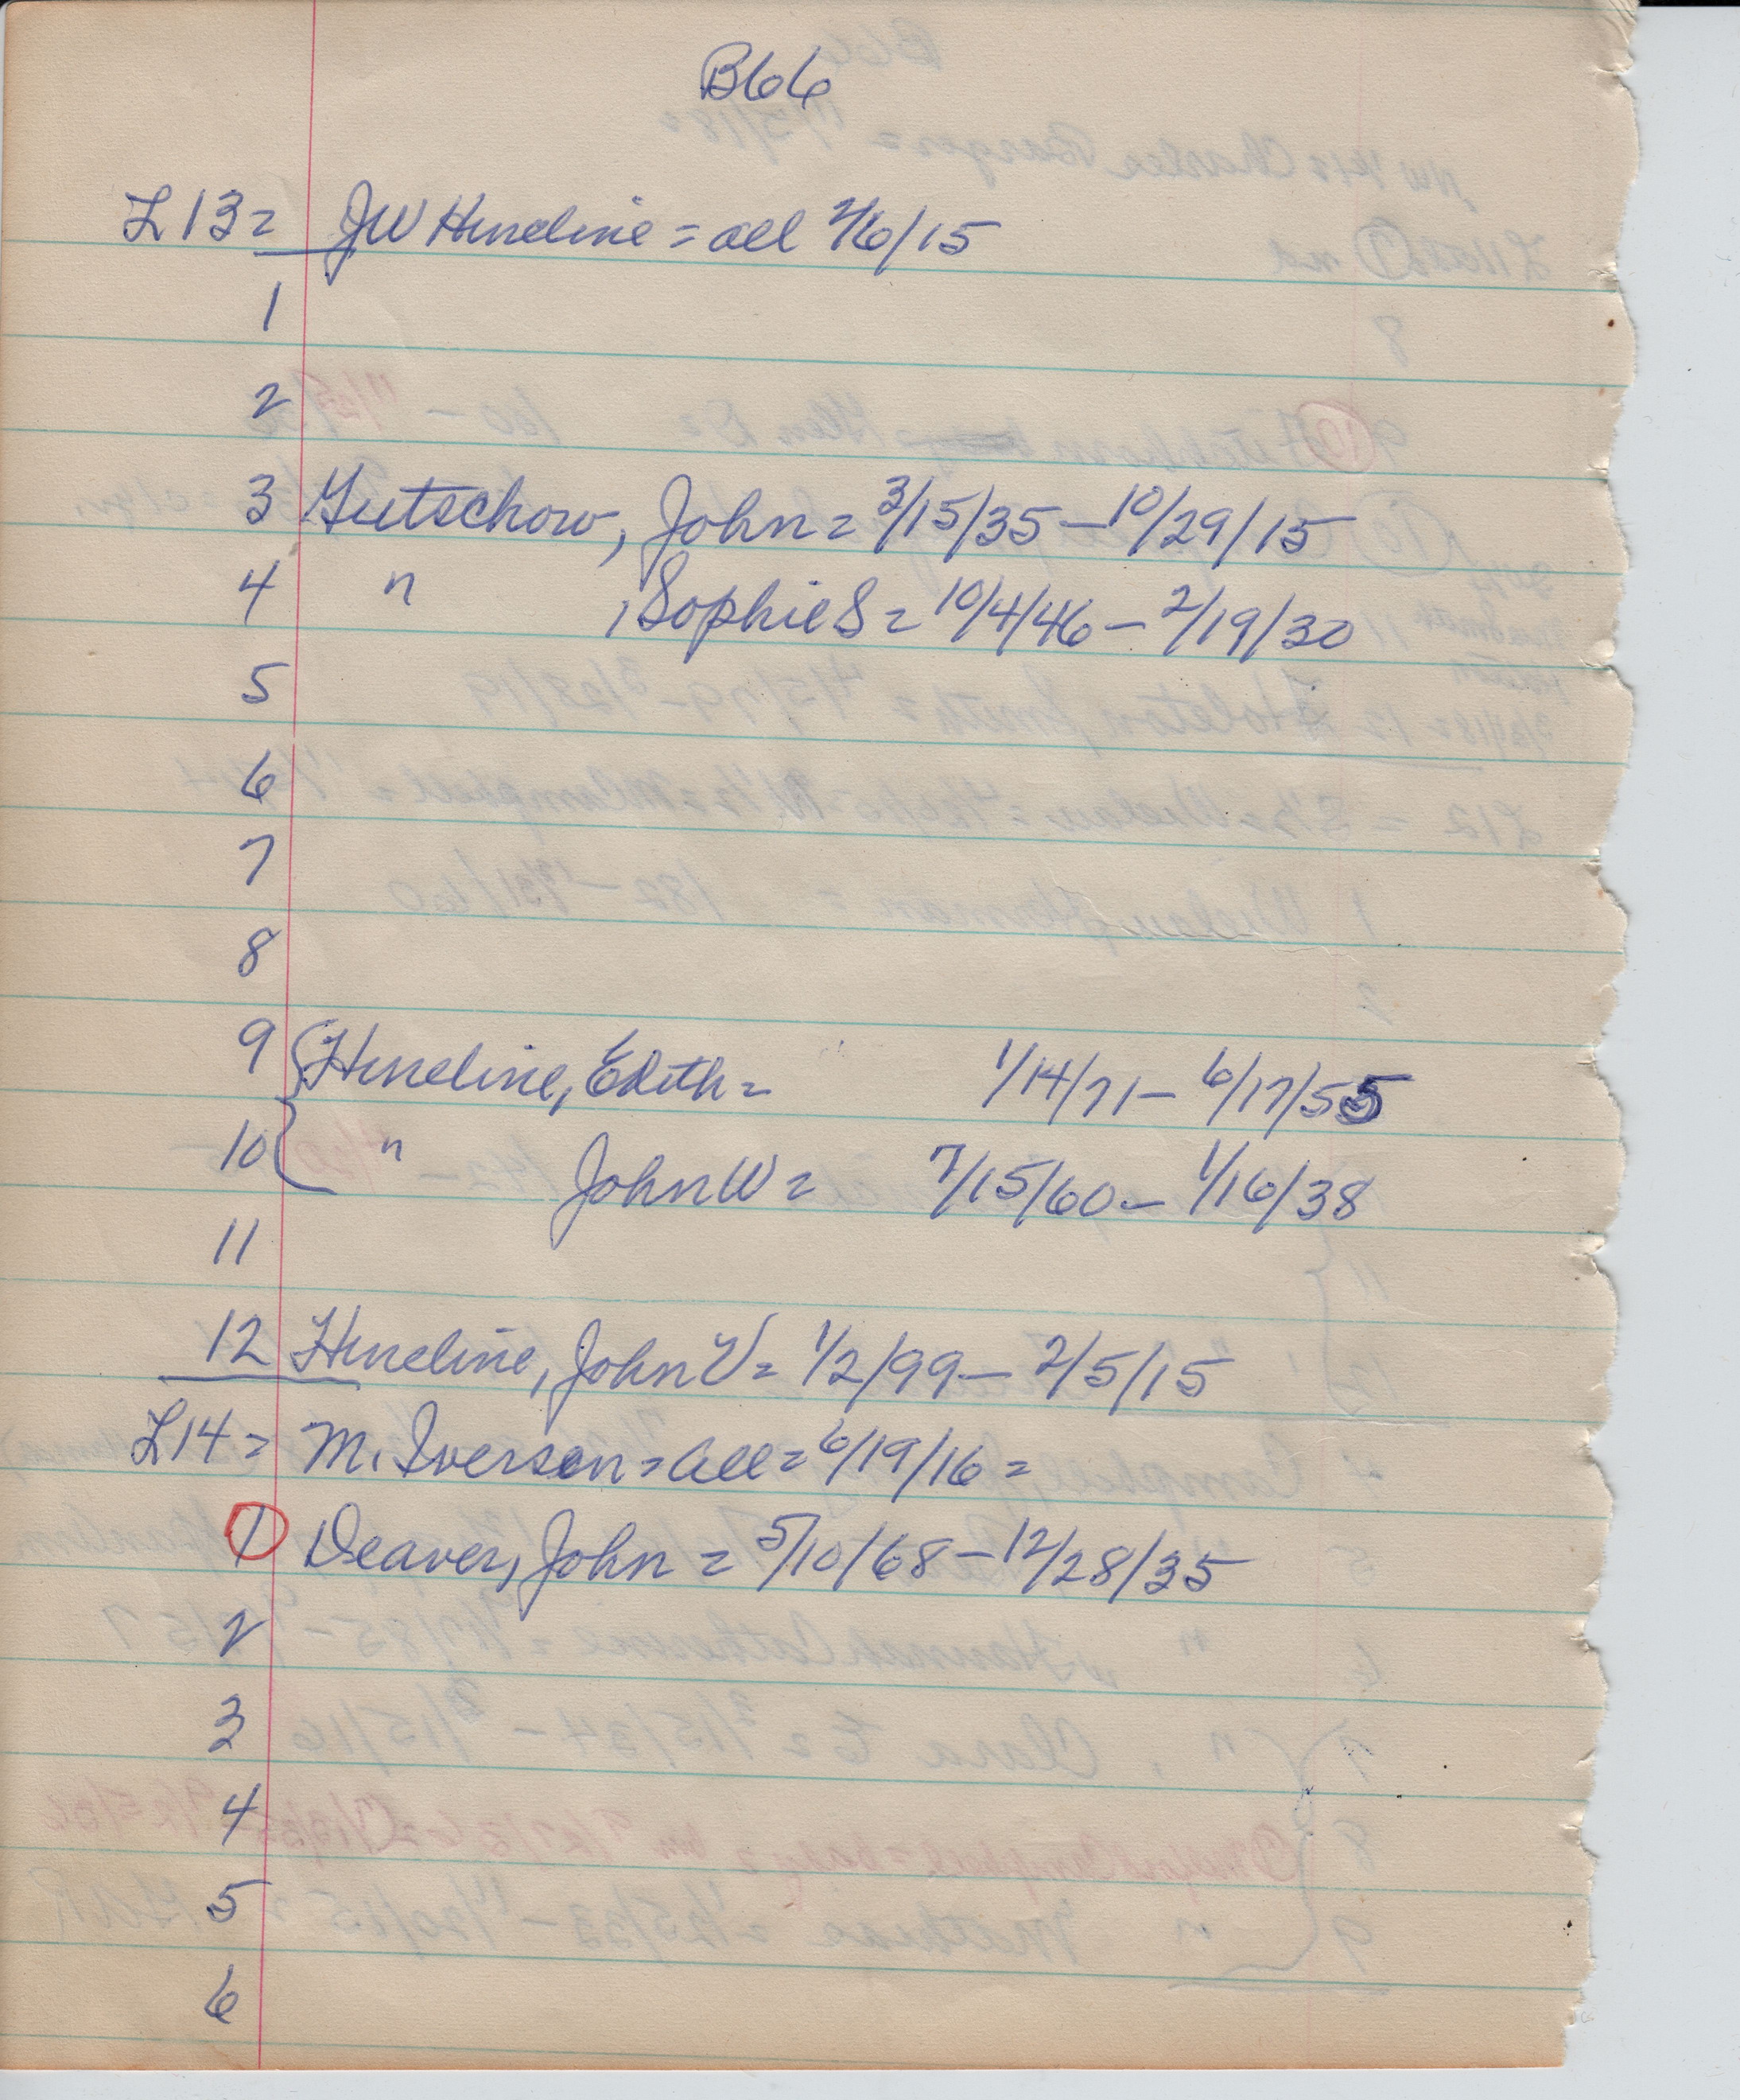 B66
L13= JW Hineline = all 2/6/15
1
2
3 Gutschow, John = 3/15/35 - 10/29/15
4 " , Sophie S = 10/4/46 - 2/19/30
5
6
7
8
9 Hineline, Edith = 1/14/71 - 6/17/55
10 " John W = 7/15/60 - 1/16/38
11
12 Hineline, John V = 1/2/99 - 2/5/15
L14 = M. Iverson = all = 6/19/16 =
1 Deaver, John = 5/10/68 - 12/28/35
2
3
4
5
6